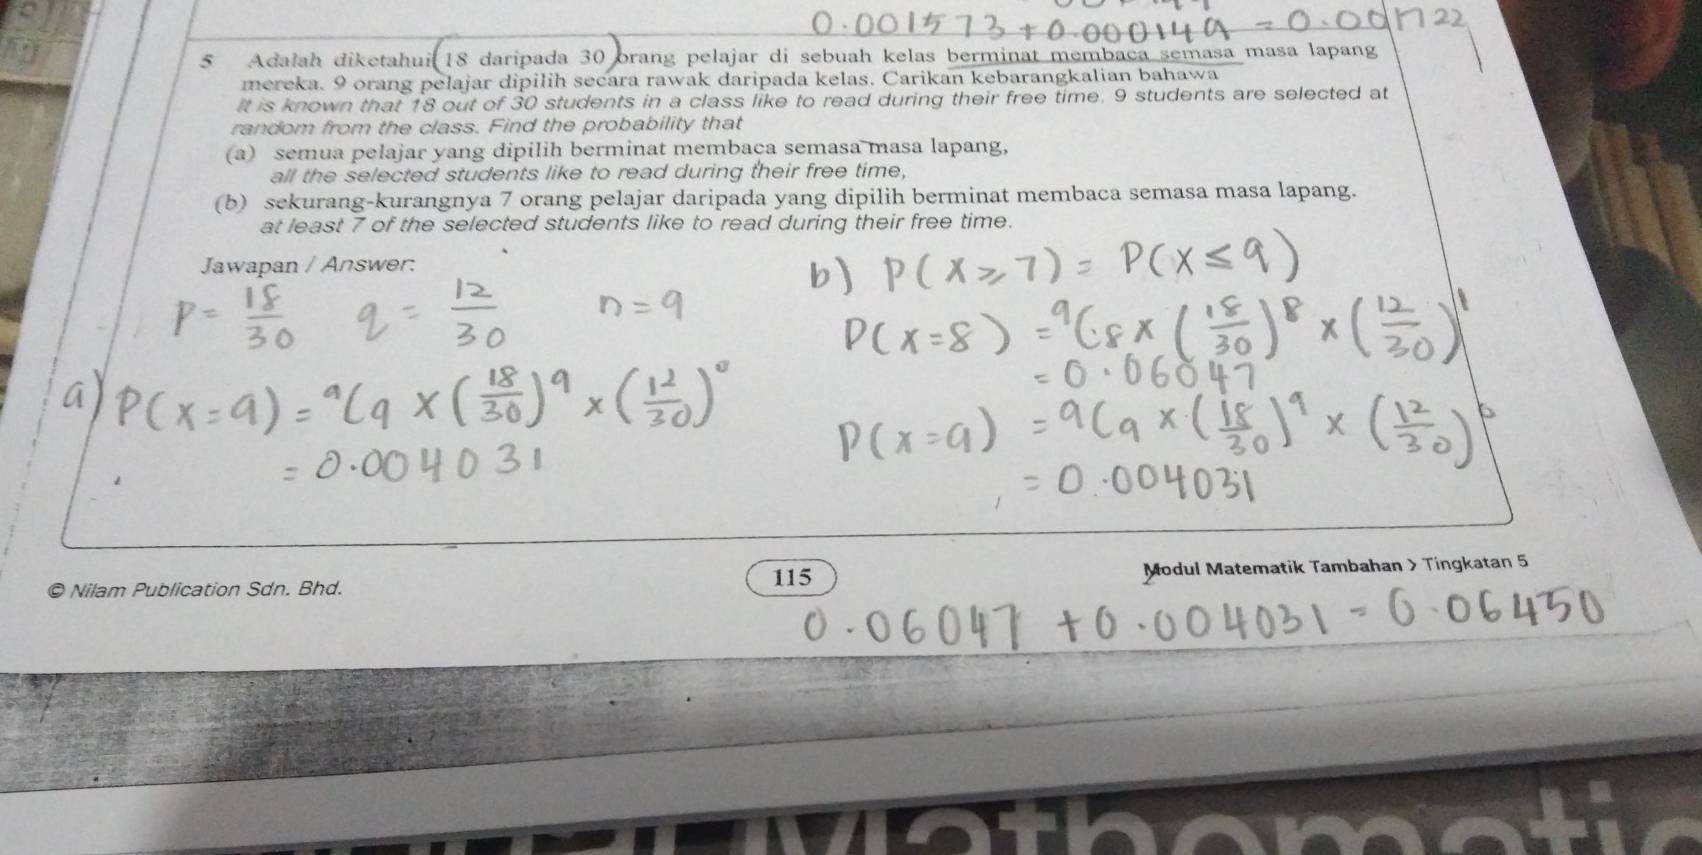 0.001573 + 0.000149 = 0.001722
5 Adalah diketahui 18 daripada 30 orang pelajar di sebuah kelas berminat membaca semasa masa lapang
mereka. 9 orang pelajar dipilih secara rawak daripada kelas. Carikan kebarangkalian bahawa
It is known that 18 out of 30 students in a class like to read during their free time. 9 students are selected at
random from the class. Find the probability that
(a) semua pelajar yang dipilih berminat membaca semasa masa lapang,
all the selected students like to read during their free time,
(b) sekurang-kurangnya 7 orang pelajar daripada yang dipilih berminat membaca semasa masa lapang.
at least 7 of the selected students like to read during their free time.
Jawapan / Answer:
P = 18/30 q = 12/30 n = 9
a) P(x = 9) = ⁹C₉ × (18/30)⁹ × (12/30)⁰
= 0.004031
b) P(x ≥ 7) = P(x ≤ 9)
P(x = 8) = ⁹C₈ × (18/30)⁸ × (12/30)¹
= 0.06047
P(x = 9) = ⁹C₉ × (18/30)⁹ × (12/30)⁰
= 0.004031
© Nilam Publication Sdn. Bhd.
115
Modul Matematik Tambahan > Tingkatan 5
0.06047 + 0.004031 = 0.06450